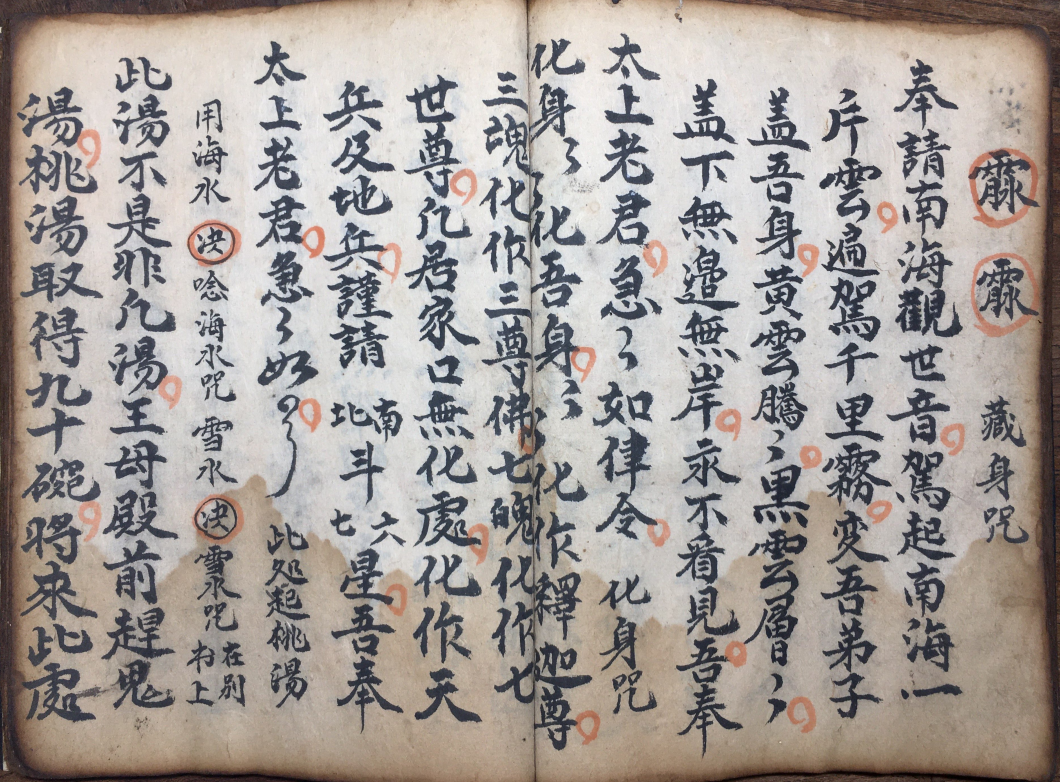 藏身咒
奉請南海觀世音駕起南海一
片雲遍駕千里霧變吾弟子
盖吾身黄雲騰〻黑雲層〻
盖下無邉無岸永不看見吾奉
太上老君急〻如律令 化身咒
化身〻〻化吾身〻〻化作釋迦尊
三魂化作三尊佛七魄化作七
世尊凢居家口無化處化作天
兵及地兵謹請南北斗六七星吾奉
太上老君急〻如 此处起桃湯
用海水決唸海水咒雪水決雪水咒在别书上
此湯不是非凢湯王母殿前趕鬼
湯桃湯取得九十碗將來此處